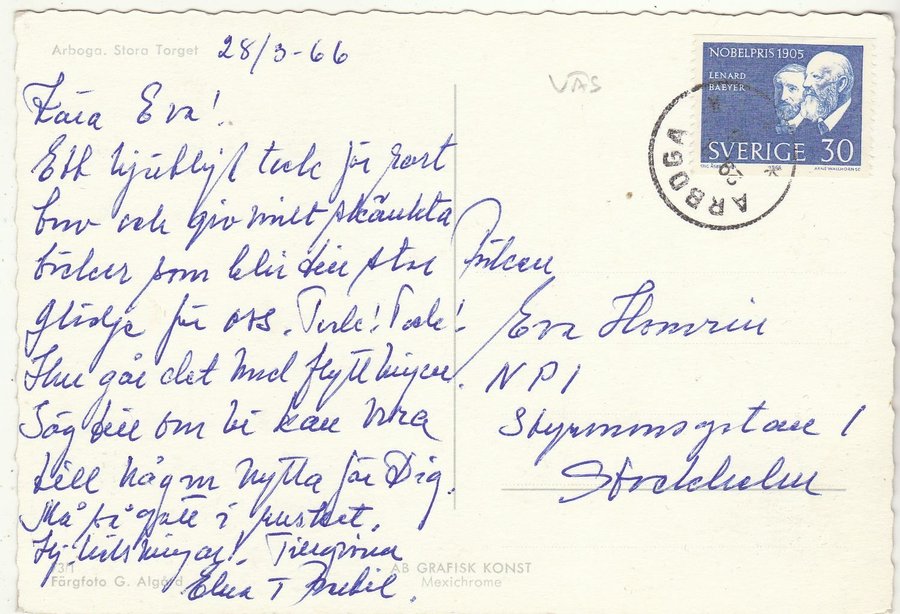 Arboga. Stora Torget
28/3-66
Kära Eva!
Ett hjärtligt tack för rart
brev och givmilt skänkta
böcker som blir till stor
glädje för oss. Tack! Tack!
Hur går det med flyttningen.
Säg till om vi kan vara
till någon nytta för Dig.
Må så gott i rusket.
Hj. hälsningar! Tillgivna
Elna
311
Färgfoto G. Algård
AB GRAFISK KONST
Mexichrome
VÄS
NOBELPRIS 1905
LENARD
BAEYER
SVERIGE 30
ARBOGA
Fröken
Eva
NPI
Styrmansgatan 1
Stockholm